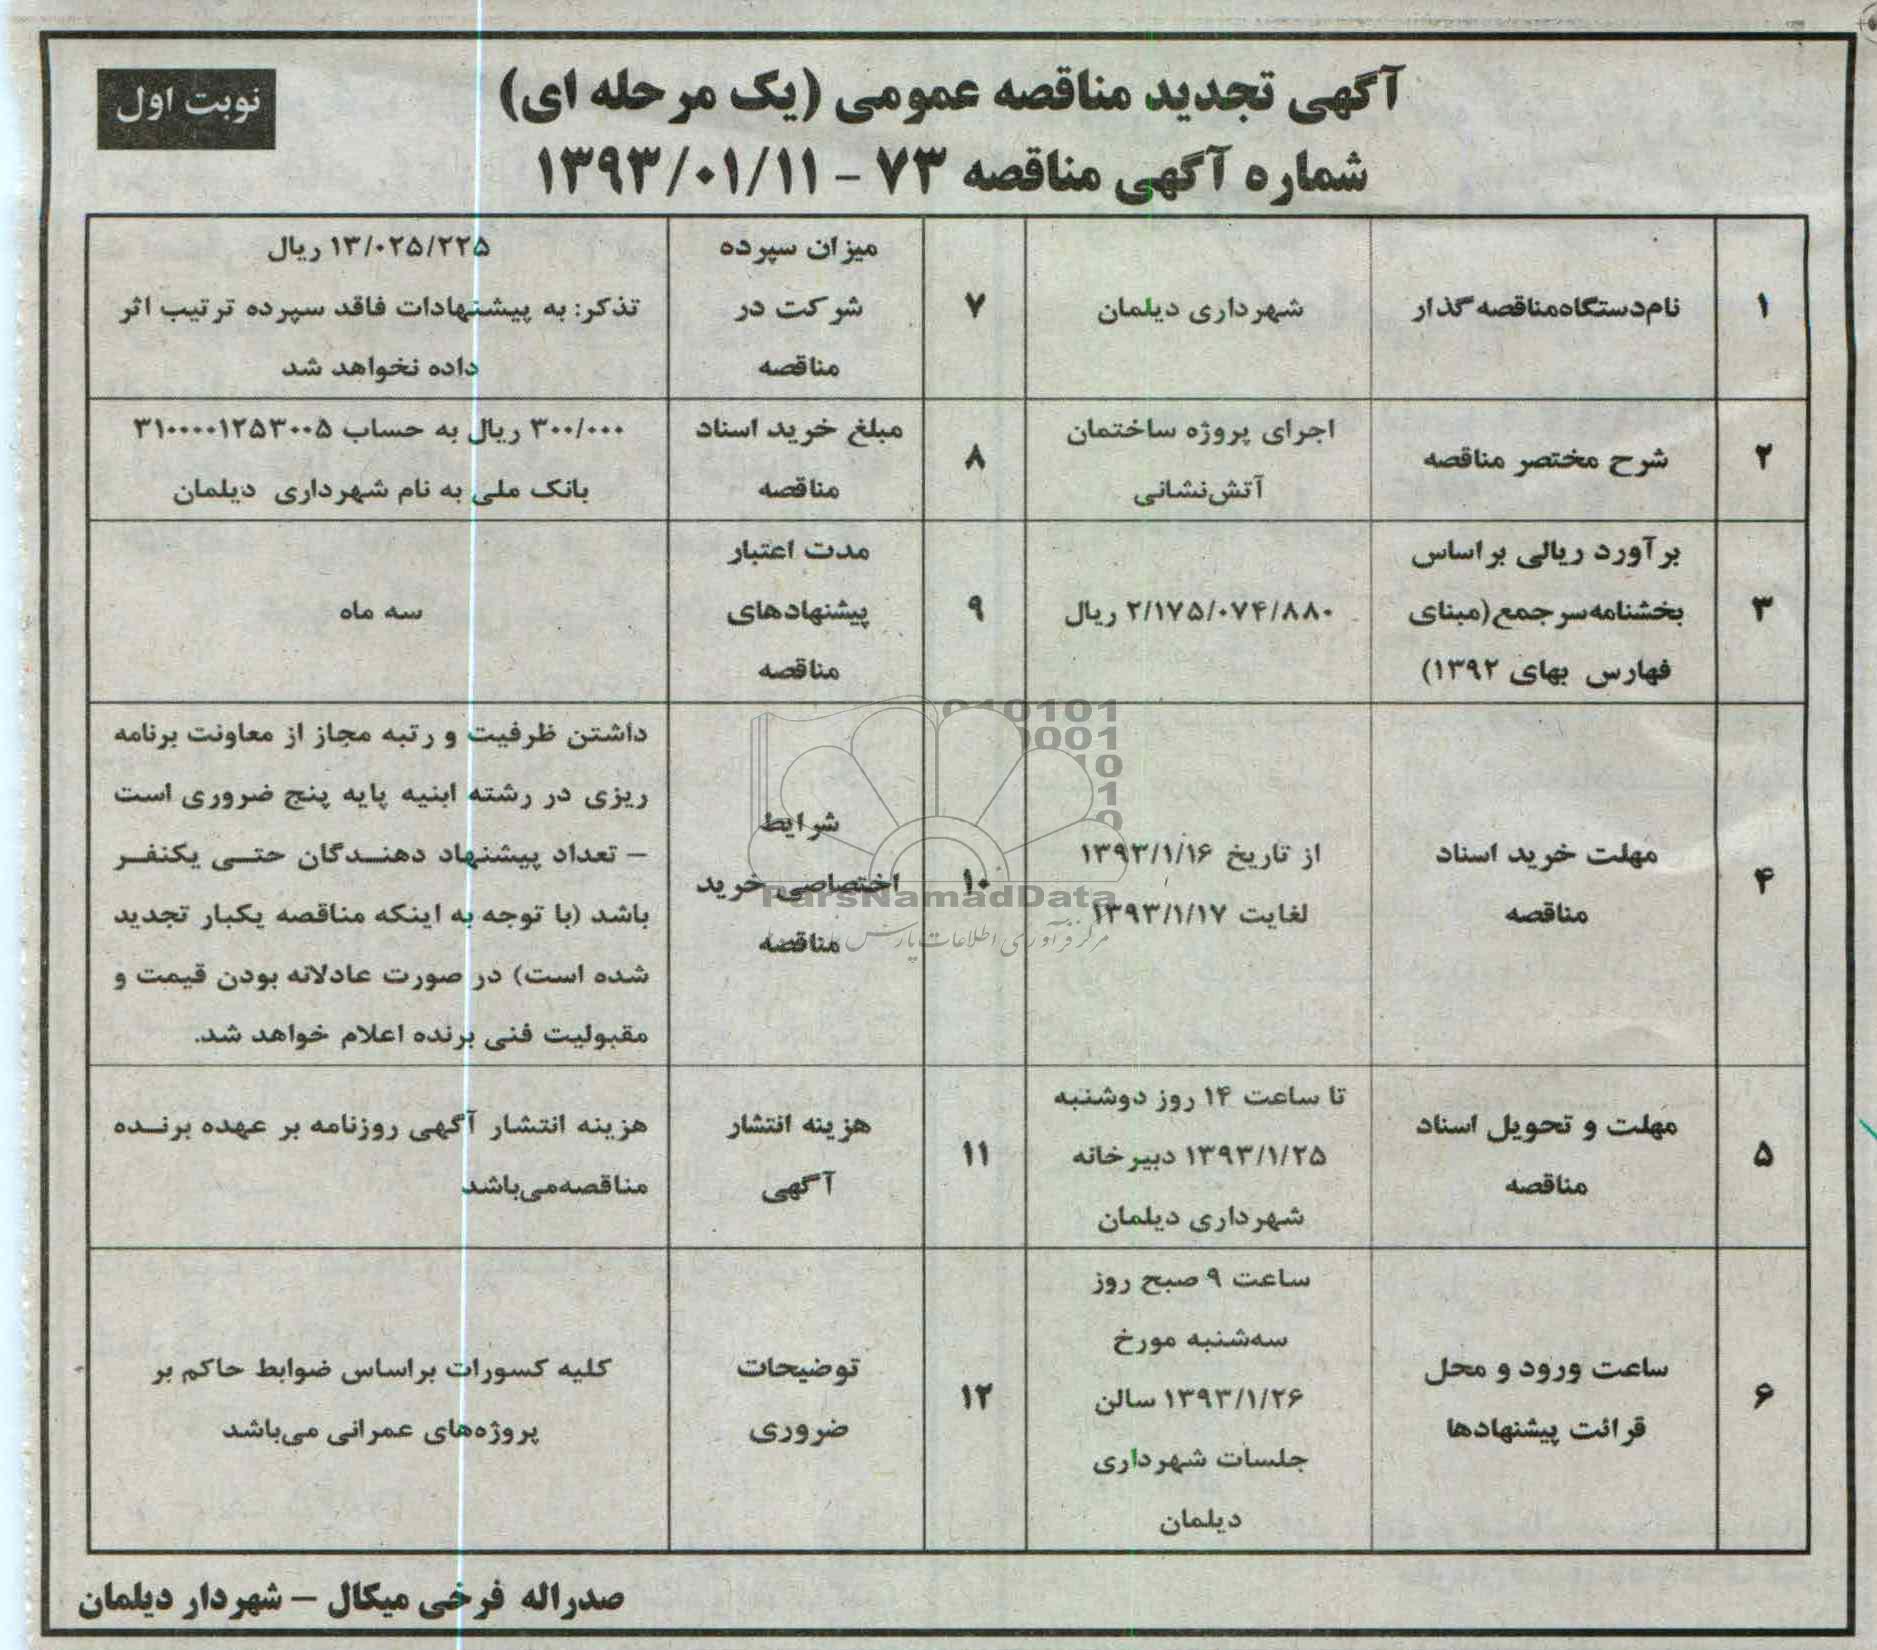 آگهی تجدید مناقصه عمومی (یک مرحله ای)
نوبت اول
شماره آگهی مناقصه ۷۳ - ۱۳۹۳/۰۱/۱۱
۱
نام‌دستگاه‌مناقصه‌گذار
شهرداری دیلمان
۷
میزان سپرده
شرکت در
مناقصه
۱۳/۰۲۵/۲۲۵ ریال
تذکر: به پیشنهادات فاقد سپرده ترتیب اثر
داده نخواهد شد
۲
شرح مختصر مناقصه
اجرای پروژه ساختمان
آتش‌نشانی
۸
مبلغ خرید اسناد
مناقصه
۳۰۰/۰۰۰ ریال به حساب ۳۱۰۰۰۰۱۲۵۳۰۰۵
بانک ملی به نام شهرداری دیلمان
۳
برآورد ریالی براساس
بخشنامه‌سرجمع(مبنای
فهارس بهای ۱۳۹۲)
۲/۱۷۵/۰۷۴/۸۸۰ ریال
۹
مدت اعتبار
پیشنهادهای
مناقصه
سه ماه
۴
مهلت خرید اسناد
مناقصه
از تاریخ ۱۳۹۳/۱/۱۶
لغایت ۱۳۹۳/۱/۱۷
۱۰
شرایط
اختصاصی خرید
مناقصه
داشتن ظرفیت و رتبه مجاز از معاونت برنامه
ریزی در رشته ابنیه پایه پنج ضروری است
– تعداد پیشنهاد دهندگان حتی یکنفر
باشد (با توجه به اینکه مناقصه یکبار تجدید
شده است) در صورت عادلانه بودن قیمت و
مقبولیت فنی برنده اعلام خواهد شد.
۵
مهلت و تحویل اسناد
مناقصه
تا ساعت ۱۴ روز دوشنبه
۱۳۹۳/۱/۲۵ دبیرخانه
شهرداری دیلمان
۱۱
هزینه انتشار
آگهی
هزینه انتشار آگهی روزنامه بر عهده برنده
مناقصه‌می‌باشد
۶
ساعت ورود و محل
قرائت پیشنهادها
ساعت ۹ صبح روز
سه‌شنبه مورخ
۱۳۹۳/۱/۲۶ سالن
جلسات شهرداری
دیلمان
۱۲
توضیحات
ضروری
کلیه کسورات براساس ضوابط حاکم بر
پروژه‌های عمرانی می‌باشد
صدراله فرخی میکال – شهردار دیلمان
ParsNamadData
مرکز فرآوری اطلاعات پارس